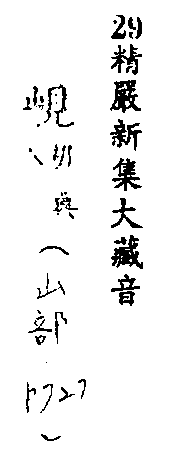 29精嚴新集大藏音
峴
典（山部
P727）